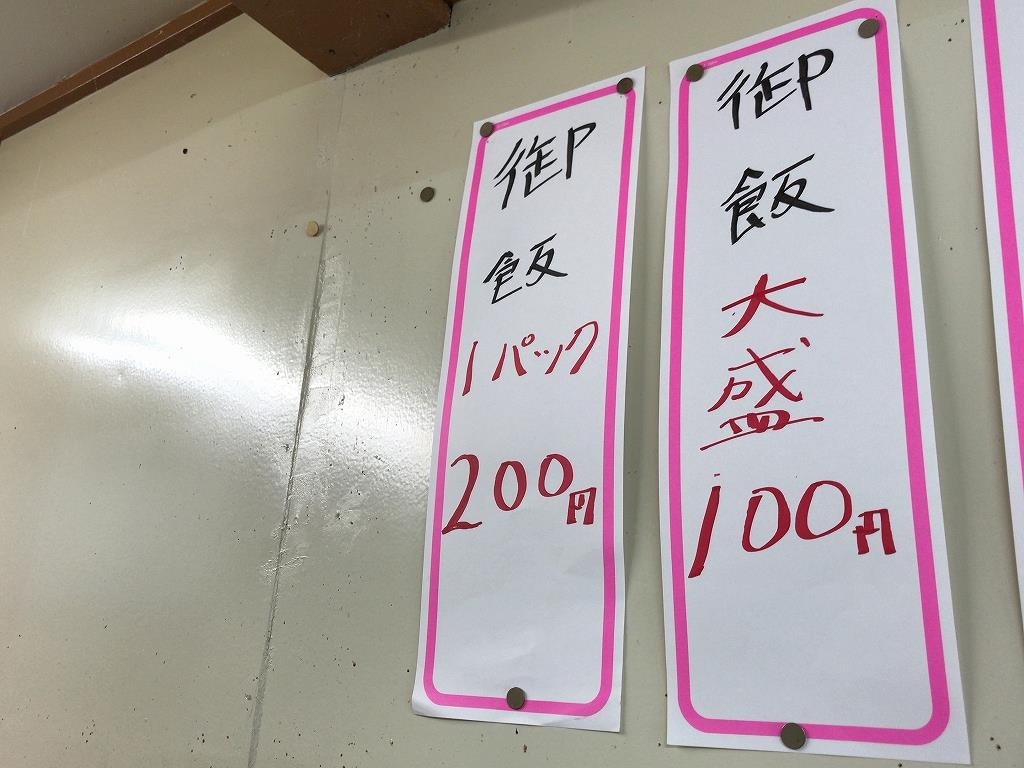 御飯
1パック
200円
御飯
大盛
100円